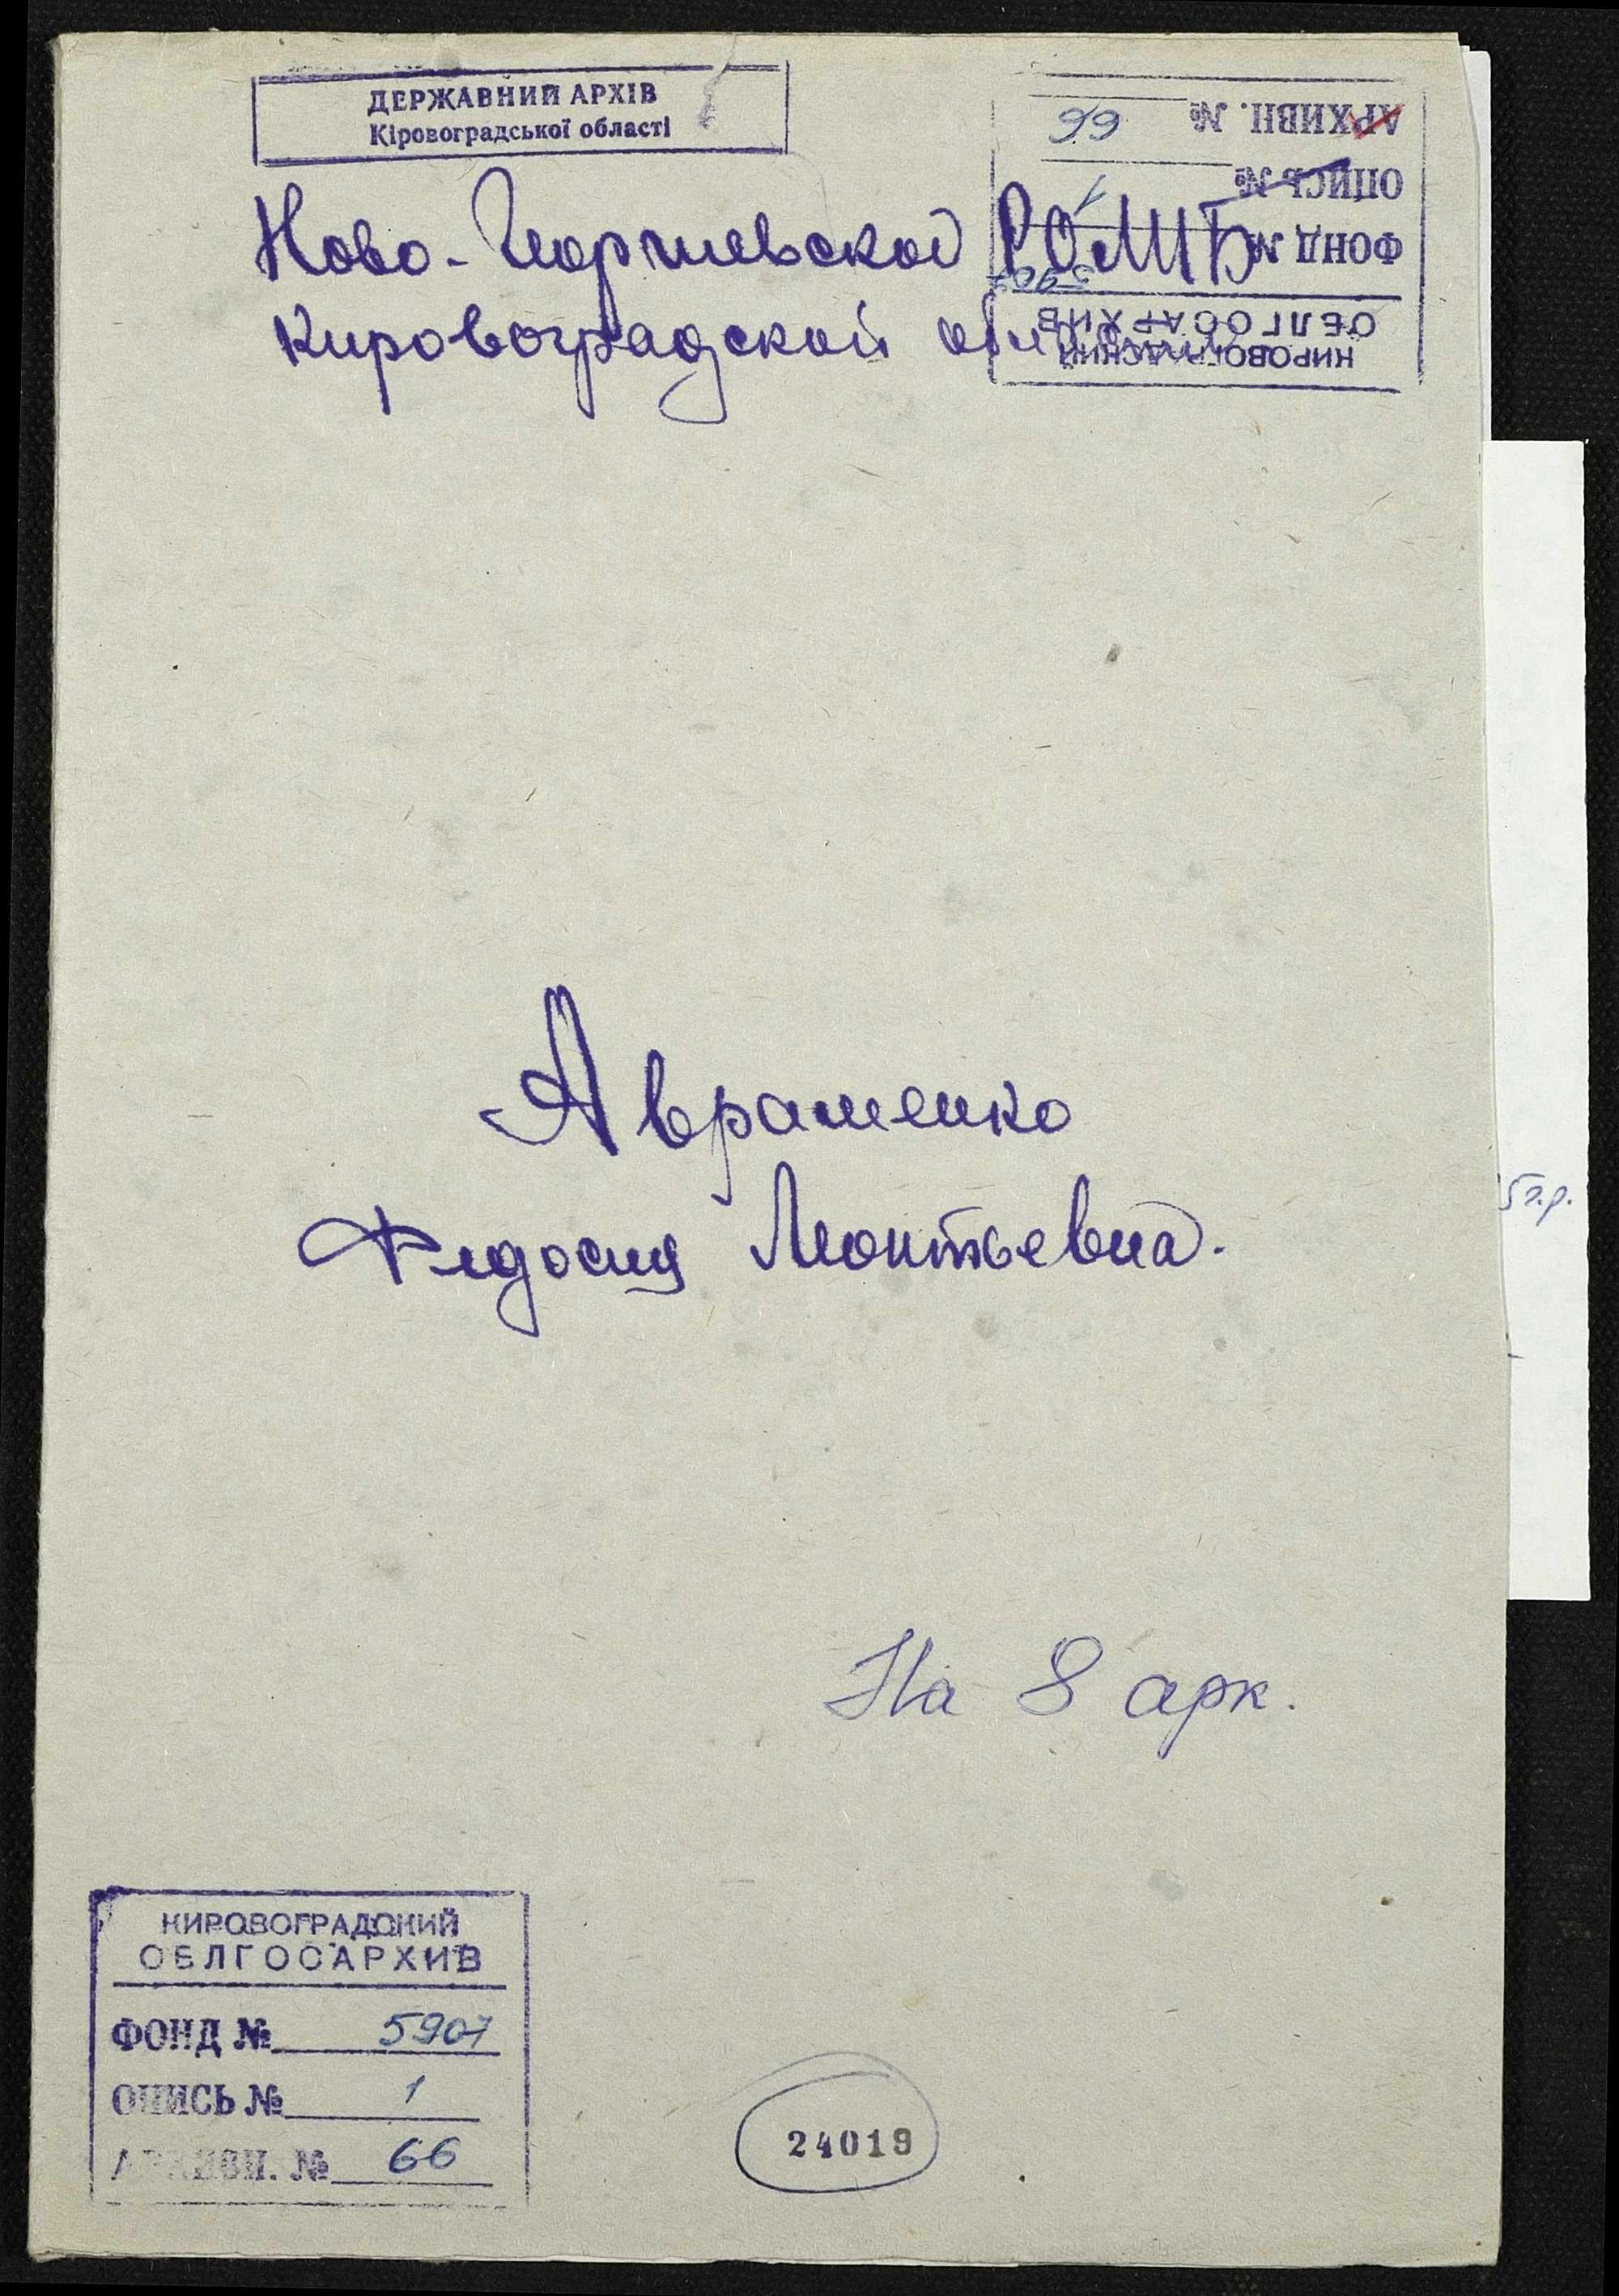 ДЕРЖАВНИЙ АРХІВ
Кіровоградської області
АРХИВН. № 66
ОПИСЬ № 1
ФОНД № 5907
КИРОВОГРАДСКИЙ
ОБЛГОСАРХИВ
Ново-Георгиевской
Кировоградской
Авраменко
Федосия Леонтьевна.
5 г.р.
На 8 арк.
КИРОВОГРАДСКИЙ
ОБЛГОСАРХИВ
ФОНД № 5907
ОПИСЬ № 1
АРХИВН. № 66
24019